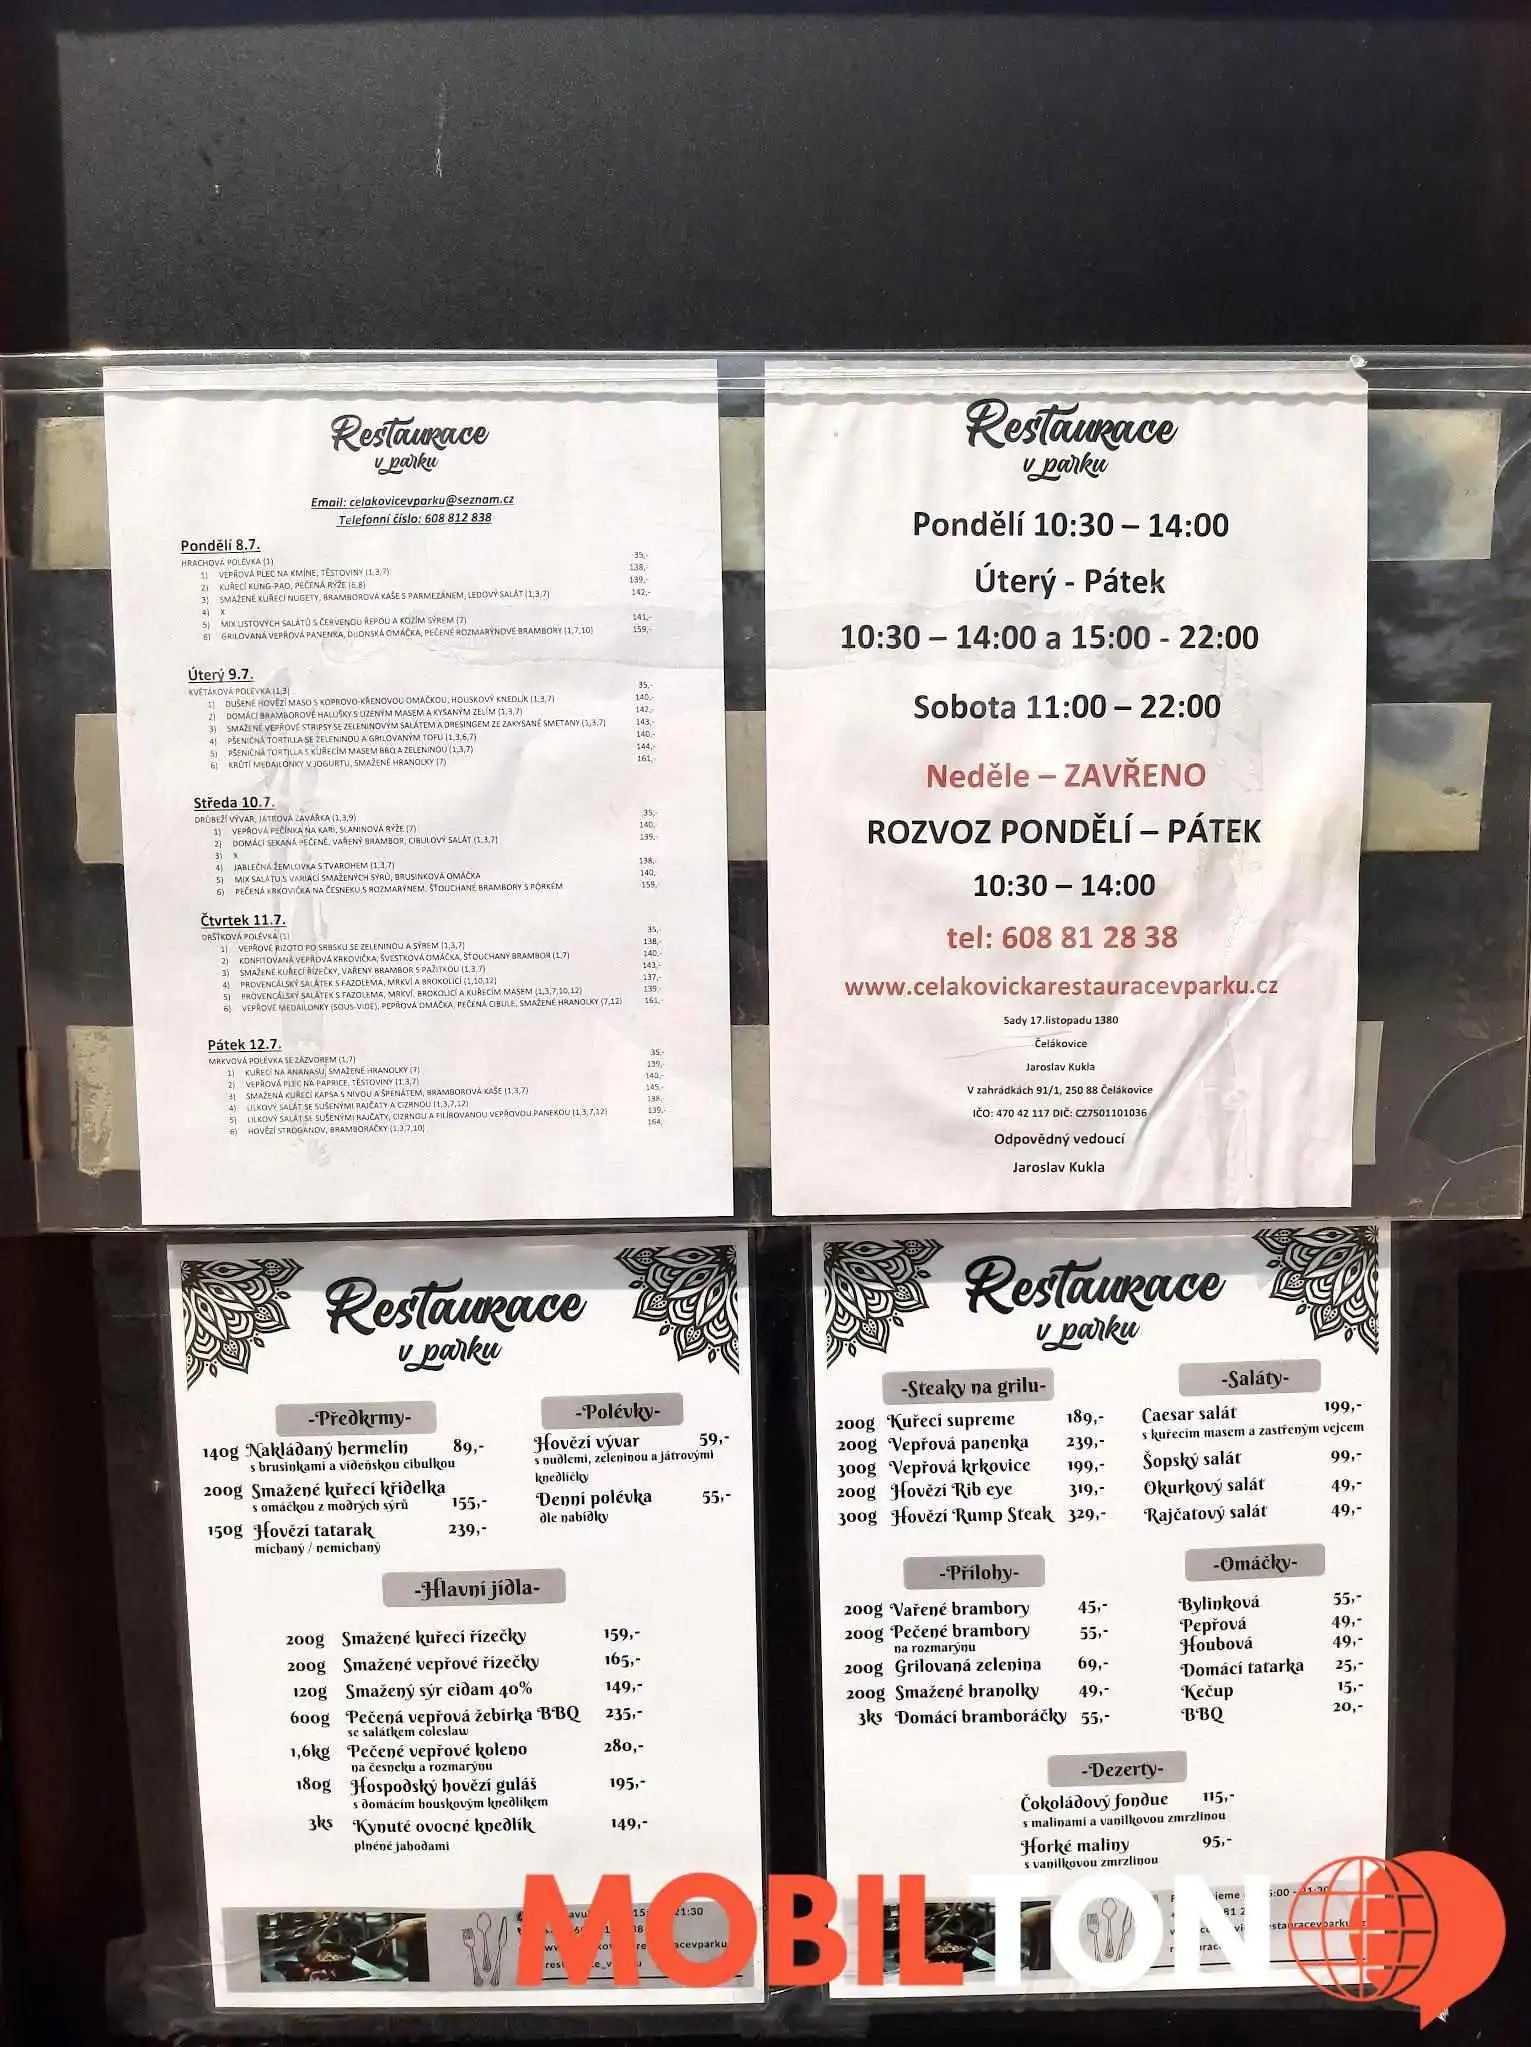 Restaurace
v parku
Email: celakovicevparku@seznam.cz
Telefonní číslo: 608 812 838
Pondělí 8.7.
HRACHOVÁ POLÉVKA (1) 35,-
1) VEPŘOVÁ PLEC NA KMÍNE, TĚSTOVINY (1,3,7) 138,-
2) KUŘECÍ KUNG-PAO, PEČENÁ RÝŽE (6,8) 139,-
3) SMAŽENÉ KUŘECÍ NUGETY, BRAMBOROVÁ KAŠE S PARMEZÁNEM, LEDOVÝ SALÁT (1,3,7) 142,-
4) X
5) MIX LISTOVÝCH SALÁTŮ S ČERVENOU ŘEPOU A KOZÍM SÝREM (7) 141,-
6) GRILOVANÁ VEPŘOVÁ PANENKA, DIJONSKÁ OMÁČKA, PEČENÉ ROZMARÝNOVÉ BRAMBORY (1,7,10) 159,-
Úterý 9.7.
KVĚTÁKOVÁ POLÉVKA (1,3) 35,-
1) DUŠENÉ HOVĚZÍ MASO S KOPROVO-KŘENOVOU OMÁČKOU, HOUSKOVÝ KNEDLÍK (1,3,7) 140,-
2) DOMÁCÍ BRAMBOROVÉ HALUŠKY S UZENÝM MASEM A KYSANÝM ZELÍM (1,3,7) 142,-
3) SMAŽENÉ VEPŘOVÉ STRIPSY SE ZELENINOVÝM SALÁTEM A DRESINGEM ZE ZAKYSANÉ SMETANY (1,3,7) 143,-
4) PŠENIČNÁ TORTILLA SE ZELENINOU A GRILOVANÝM TOFU (1,3,6,7) 140,-
5) PŠENIČNÁ TORTILLA S KUŘECÍM MASEM BBQ A ZELENINOU (1,3,7) 144,-
6) KRŮTÍ MEDAILONKY V JOGURTU, SMAŽENÉ HRANOLKY (7) 161,-
Středa 10.7.
DRŮBEŽÍ VÝVAR, JÁTROVÁ ZAVÁŘKA (1,3,9) 35,-
1) VEPŘOVÁ PEČÍNKA NA KARI, SLANINOVÁ RÝŽE (7) 140,
2) DOMÁCÍ SEKANÁ PEČENĚ, VAŘENÝ BRAMBOR, CIBULOVÝ SALÁT (1,3,7) 139,-
3) X
4) JABLEČNÁ ŽEMLOVKA S TVAROHEM (1,3,7) 138,-
5) MIX SALÁTU S VARIACÍ SMAŽENÝCH SÝRŮ, BRUSINKOVÁ OMÁČKA 140,
6) PEČENÁ KRKOVIČKA NA ČESNEKU S ROZMARÝNEM, ŠŤOUCHANÉ BRAMBORY S PÓRKEM 159,
Čtvrtek 11.7.
DRŠŤKOVÁ POLÉVKA (1) 35,-
1) VEPŘOVÉ RIZOTO PO SRBSKU SE ZELENINOU A SÝREM (1,3,7) 138,-
2) KONFITOVANÁ VEPŘOVÁ KRKOVIČKA, ŠVESTKOVÁ OMÁČKA, ŠŤOUCHANÝ BRAMBOR (1,7) 140,-
3) SMAŽENÉ KUŘECÍ ŘÍZEČKY, VAŘENÝ BRAMBOR S PAŽITKOU (1,3,7) 143,-
4) PROVENCÁLSKÝ SALÁTEK S FAZOLEMA, MRKVÍ A BROKOLICÍ (1,10,12) 137,-
5) PROVENCÁLSKÝ SALÁTEK S FAZOLEMA, MRKVÍ, BROKOLICÍ A KUŘECÍM MASEM (1,3,7,10,12) 139,-
6) VEPŘOVÉ MEDAILONKY (SOUS-VIDE), PEPŘOVÁ OMÁČKA, PEČENÁ CIBULE, SMAŽENÉ HRANOLKY (7,12) 161,-
Pátek 12.7.
MRKVOVÁ POLÉVKA SE ZÁZVOREM (1,7) 35,-
1) KUŘECÍ NA ANANASU, SMAŽENÉ HRANOLKY (7) 139,-
2) VEPŘOVÁ PLEC NA PAPRICE, TĚSTOVINY (1,3,7) 140,-
3) SMAŽENÁ KUŘECÍ KAPSA S NIVOU A ŠPENÁTEM, BRAMBOROVÁ KAŠE (1,3,7) 145,-
4) LILKOVÝ SALÁT SE SUŠENÝMI RAJČATY A CIZRNOU (1,3,7,12) 138,-
5) LILKOVÝ SALÁT SE SUŠENÝMI RAJČATY, CIZRNOU A FILÍROVANOU VEPŘOVOU PANEKOU (1,3,7,12) 139,-
6) HOVĚZÍ STROGANOV, BRAMBORÁČKY (1,3,7,10) 164,
Restaurace
v parku
Pondělí 10:30 – 14:00
Úterý - Pátek
10:30 – 14:00 a 15:00 - 22:00
Sobota 11:00 – 22:00
Neděle – ZAVŘENO
ROZVOZ PONDĚLÍ – PÁTEK
10:30 – 14:00
tel: 608 81 28 38
www.celakovickarestauracevparku.cz
Sady 17.listopadu 1380
Čelákovice
Jaroslav Kukla
V zahrádkách 91/1, 250 88 Čelákovice
IČO: 470 42 117 DIČ: CZ7501101036
Odpovědný vedoucí
Jaroslav Kukla
Restaurace
v parku
-Předkrmy-
140g Nakládaný hermelín 89,-
s brusinkami a vídeňskou cibulkou
200g Smažené kuřecí křidelka
s omáčkou z modrých sýrů 155,-
150g Hovězí tatarak 239,-
míchaný / nemíchaný
-Polévky-
Hovězí vývar 59,-
s nudlemi, zeleninou a játrovými
knedlíčky
Denní polévka 55,-
dle nabídky
-Hlavní jídla-
200g Smažené kuřecí řízečky 159,-
200g Smažené vepřové řízečky 165,-
120g Smažený sýr eidam 40% 149,-
600g Pečená vepřová žebírka BBQ 235,-
se salátkem coleslaw
1,6kg Pečené vepřové koleno 280,-
na česneku a rozmarýnu
180g Hospodský hovězí guláš 195,-
s domácím houskovým knedlíkem
3ks Kynuté ovocné knedlík 149,-
plněné jahodami
Restaurace
v parku
-Steaky na grilu-
200g Kuřecí supreme 189,-
200g Vepřová panenka 239,-
300g Vepřová krkovice 199,-
200g Hovězí Rib eye 319,-
300g Hovězí Rump Steak 329,-
-Saláty-
Caesar salát 199,-
s kuřecím masem a zastřeným vejcem
Šopský salát 99,-
Okurkový salát 49,-
Rajčatový salát 49,-
-Přílohy-
200g Vařené brambory 45,-
200g Pečené brambory 55,-
na rozmarýnu
200g Grilovaná zelenina 69,-
200g Smažené hranolky 49,-
3ks Domácí bramboráčky 55,-
-Omáčky-
Bylinková 55,-
Pepřová 49,-
Houbová 49,-
Domácí tatarka 25,-
Kečup 15,-
BBQ 20,-
-Dezerty-
Čokoládový fondue 115,-
s malinami a vanilkovou zmrzlinou
Horké maliny 95,-
s vanilkovou zmrzlinou
MOBILTON